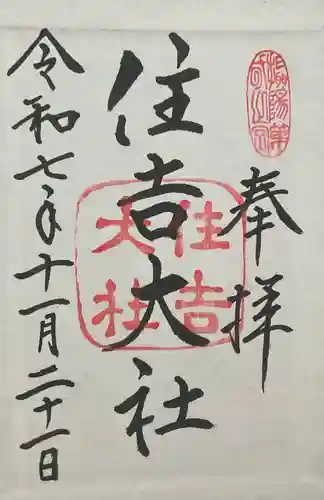 奉拝
住吉大社
住吉
大社
令和七年十一月二十一日